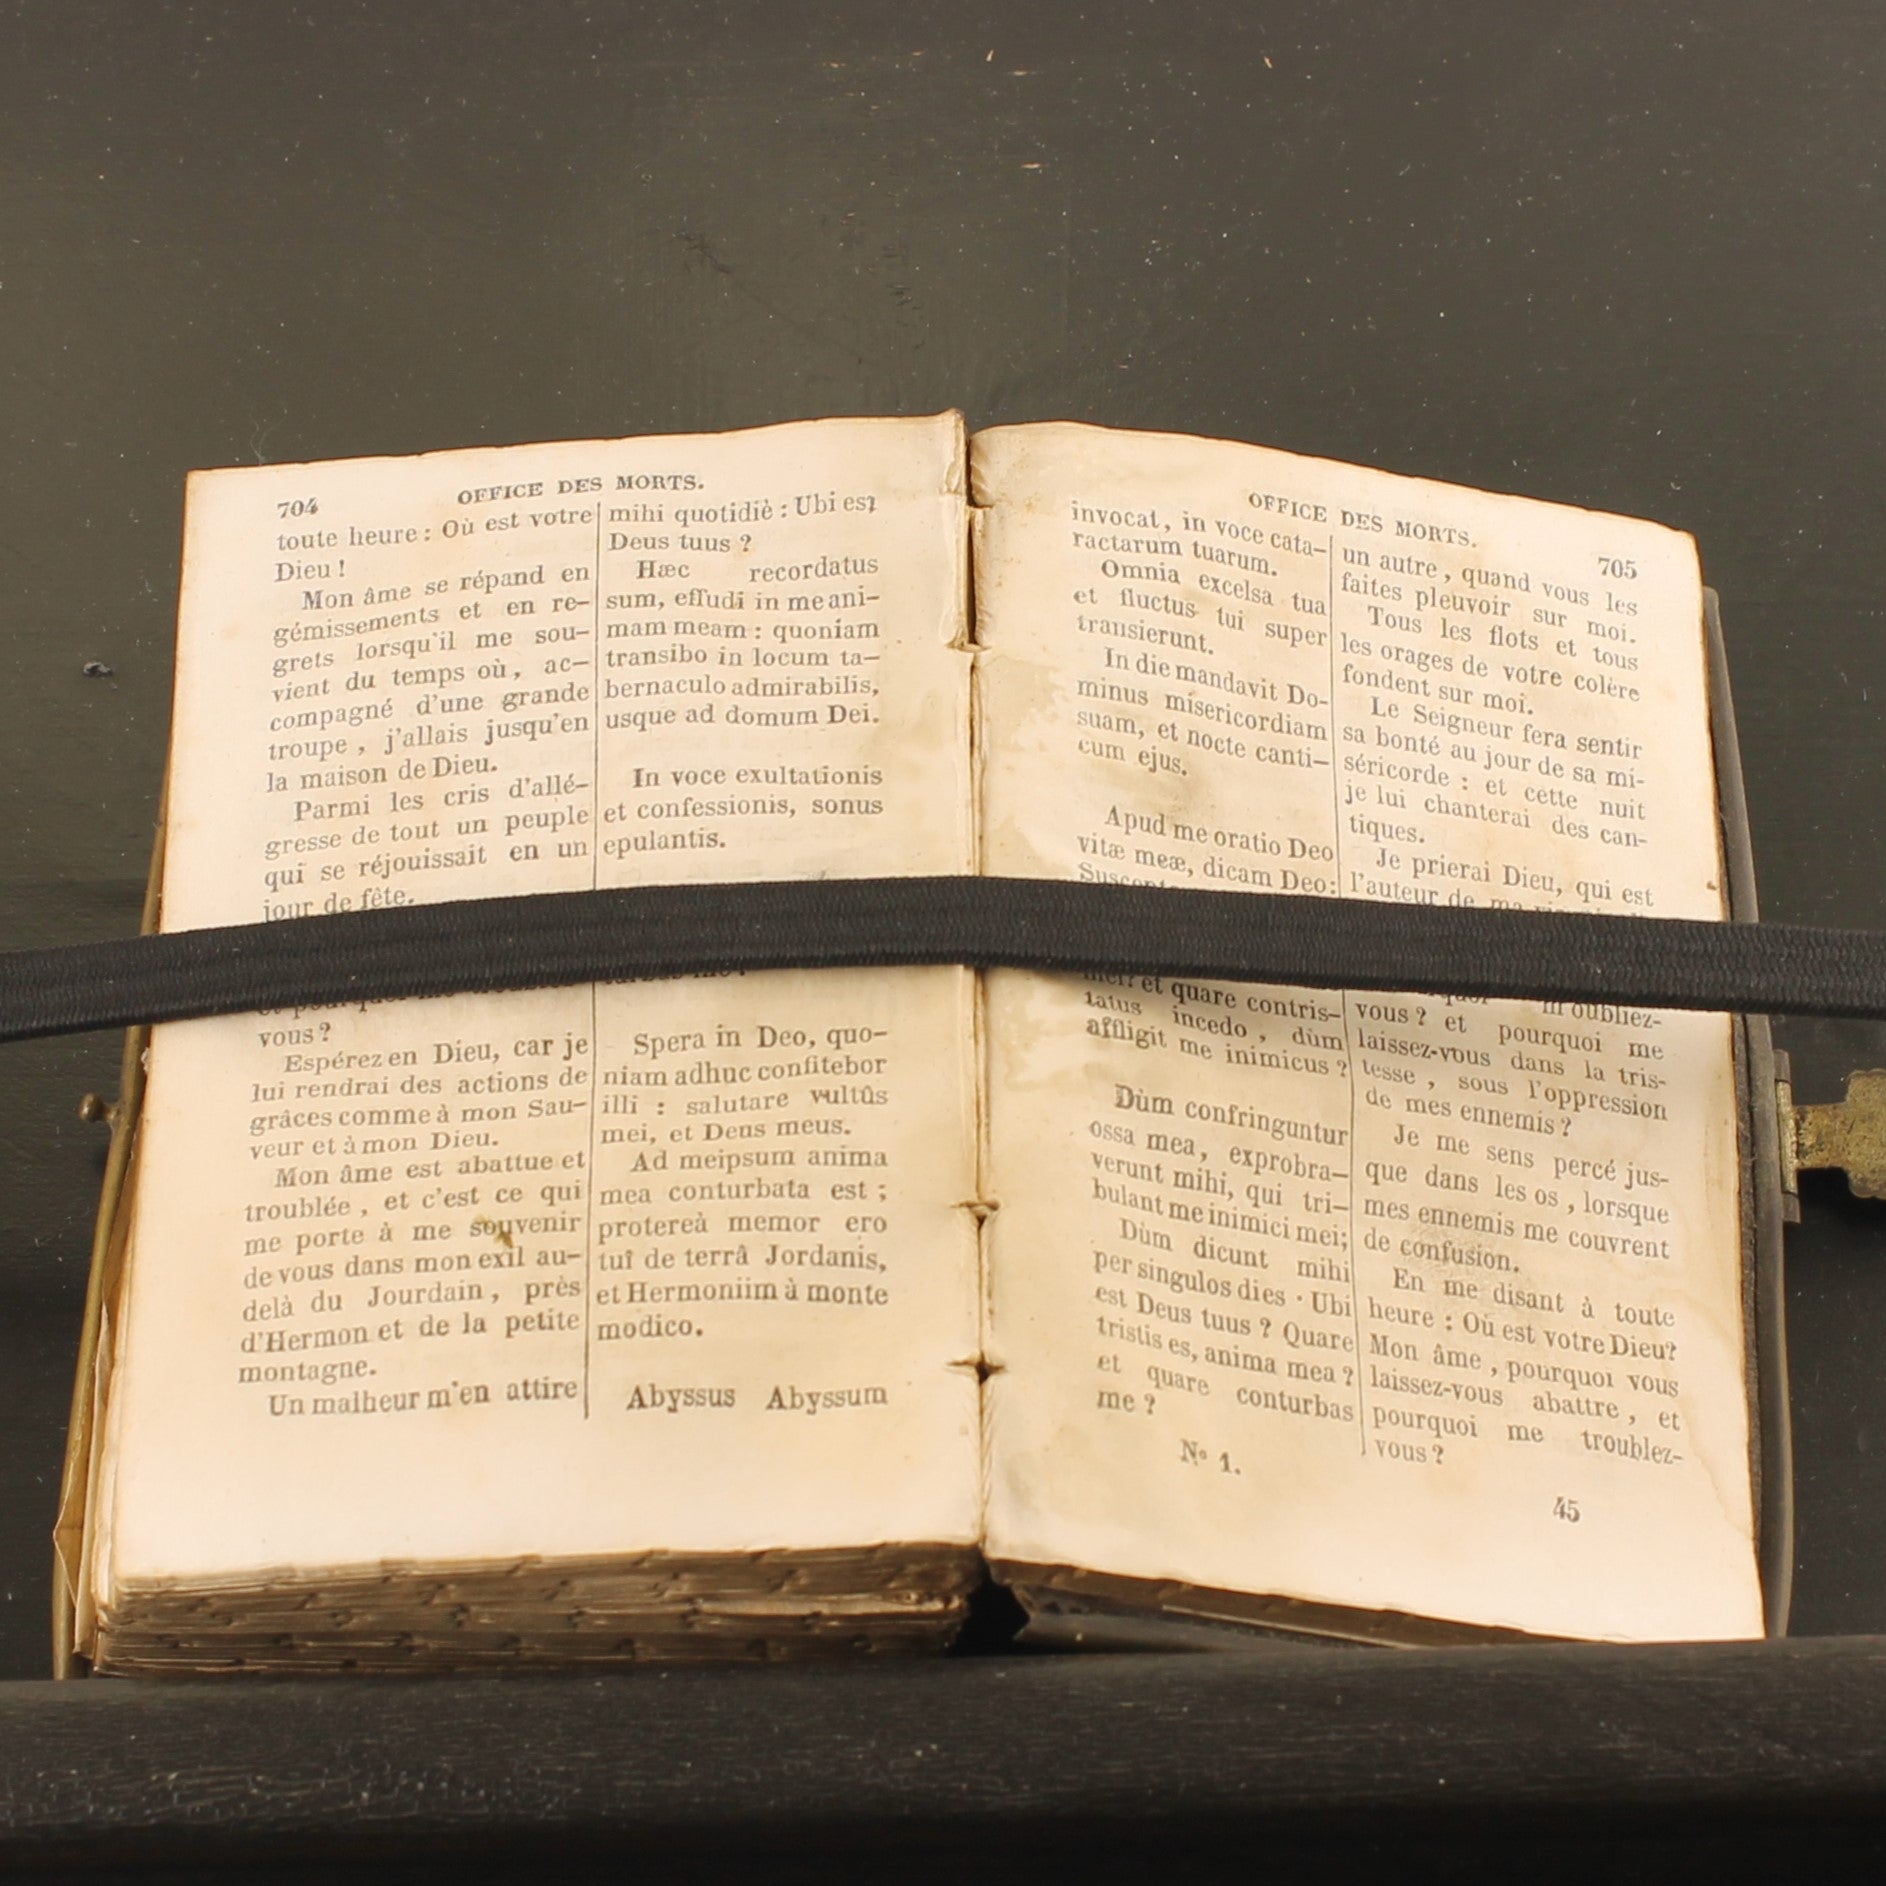 704
OFFICE DES MORTS.
toute heure : Où est votre
Dieu !
Mon âme se répand en
gémissements et en re-
grets lorsqu'il me sou-
vient du temps où, ac-
compagné d'une grande
troupe, j'allais jusqu'en
la maison de Dieu.
Parmi les cris d'allé-
gresse de tout un peuple
qui se réjouissait en un
jour de fête.
et pourquoi me
vous ?
Espérez en Dieu, car je
lui rendrai des actions de
grâces comme à mon Sau-
veur et à mon Dieu.
Mon âme est abattue et
troublée, et c'est ce qui
me porte à me souvenir
de vous dans mon exil au-
delà du Jourdain, près
d'Hermon et de la petite
montagne.
Un malheur m'en attire
mihi quotidiè : Ubi est
Deus tuus ?
Hæc recordatus
sum, effudi in me ani-
mam meam : quoniam
transibo in locum ta-
bernaculo admirabilis,
usque ad domum Dei.
In voce exultationis
et confessionis, sonus
epulantis.
me ?
Spera in Deo, quo-
niam adhuc confitebor
illi : salutare vultûs
mei, et Deus meus.
Ad meipsum anima
mea conturbata est ;
protereà memor ero
tuî de terrâ Jordanis,
et Hermoniim à monte
modico.
Abyssus Abyssum
OFFICE DES MORTS.
705
invocat, in voce cata-
ractarum tuarum.
Omnia excelsa tua
et fluctus tui super
transierunt.
In die mandavit Do-
minus misericordiam
suam, et nocte canti-
cum ejus.
Apud me oratio Deo
vitæ meæ, dicam Deo:
mei? et quare contris-
tatus incedo, dùm
affligit me inimicus ?
Dùm confringuntur
ossa mea, exprobra-
verunt mihi, qui tri-
bulant me inimici mei;
Dùm dicunt mihi
per singulos dies · Ubi
est Deus tuus ? Quare
tristis es, anima mea ?
et quare conturbas
me ?
un autre, quand vous les
faites pleuvoir sur moi.
Tous les flots et tous
les orages de votre colère
fondent sur moi.
Le Seigneur fera sentir
sa bonté au jour de sa mi-
séricorde : et cette nuit
je lui chanterai des can-
tiques.
Je prierai Dieu, qui est
l'auteur de ma
oubliez-
vous ? et pourquoi me
laissez-vous dans la tris-
tesse, sous l'oppression
de mes ennemis ?
Je me sens percé jus-
que dans les os, lorsque
mes ennemis me couvrent
de confusion.
En me disant à toute
heure : Où est votre Dieu?
Mon âme, pourquoi vous
laissez-vous abattre, et
pourquoi me troublez-
vous ?
No 1.
45